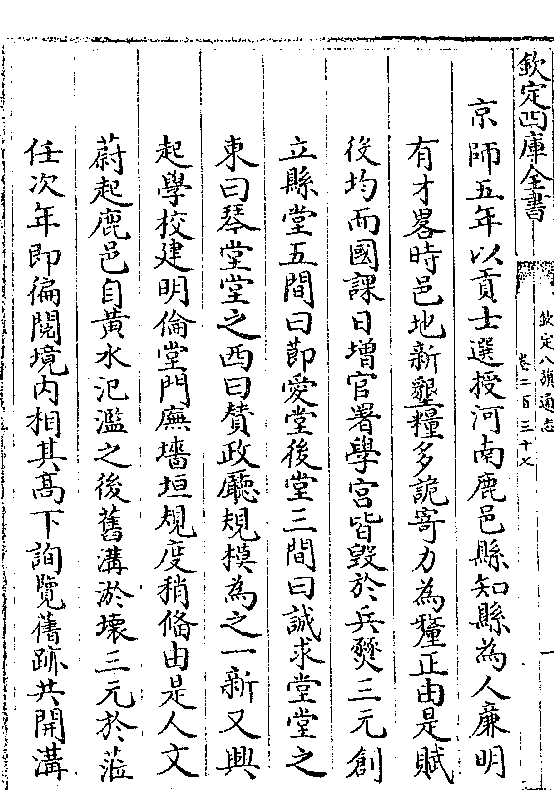 欽定四庫全書
欽定八旗通志
卷二百三十七
京師五年以貢士選授河南鹿邑縣知縣為人廉明
有才畧時邑地新墾糧多詭寄力為釐正由是賦
役均而國課日增官署學宫皆毀於兵燹三元創
立縣堂五間曰節愛堂後堂三間曰誠求堂堂之
東曰琴堂堂之西曰賛政廳規模為之一新又興
起學校建明倫堂門廡墻垣規度稍偹由是人文
蔚起鹿邑自黃水氾濫之後舊溝淤壊三元於蒞
任次年即徧閱境内相其髙下詢覽舊跡共開溝